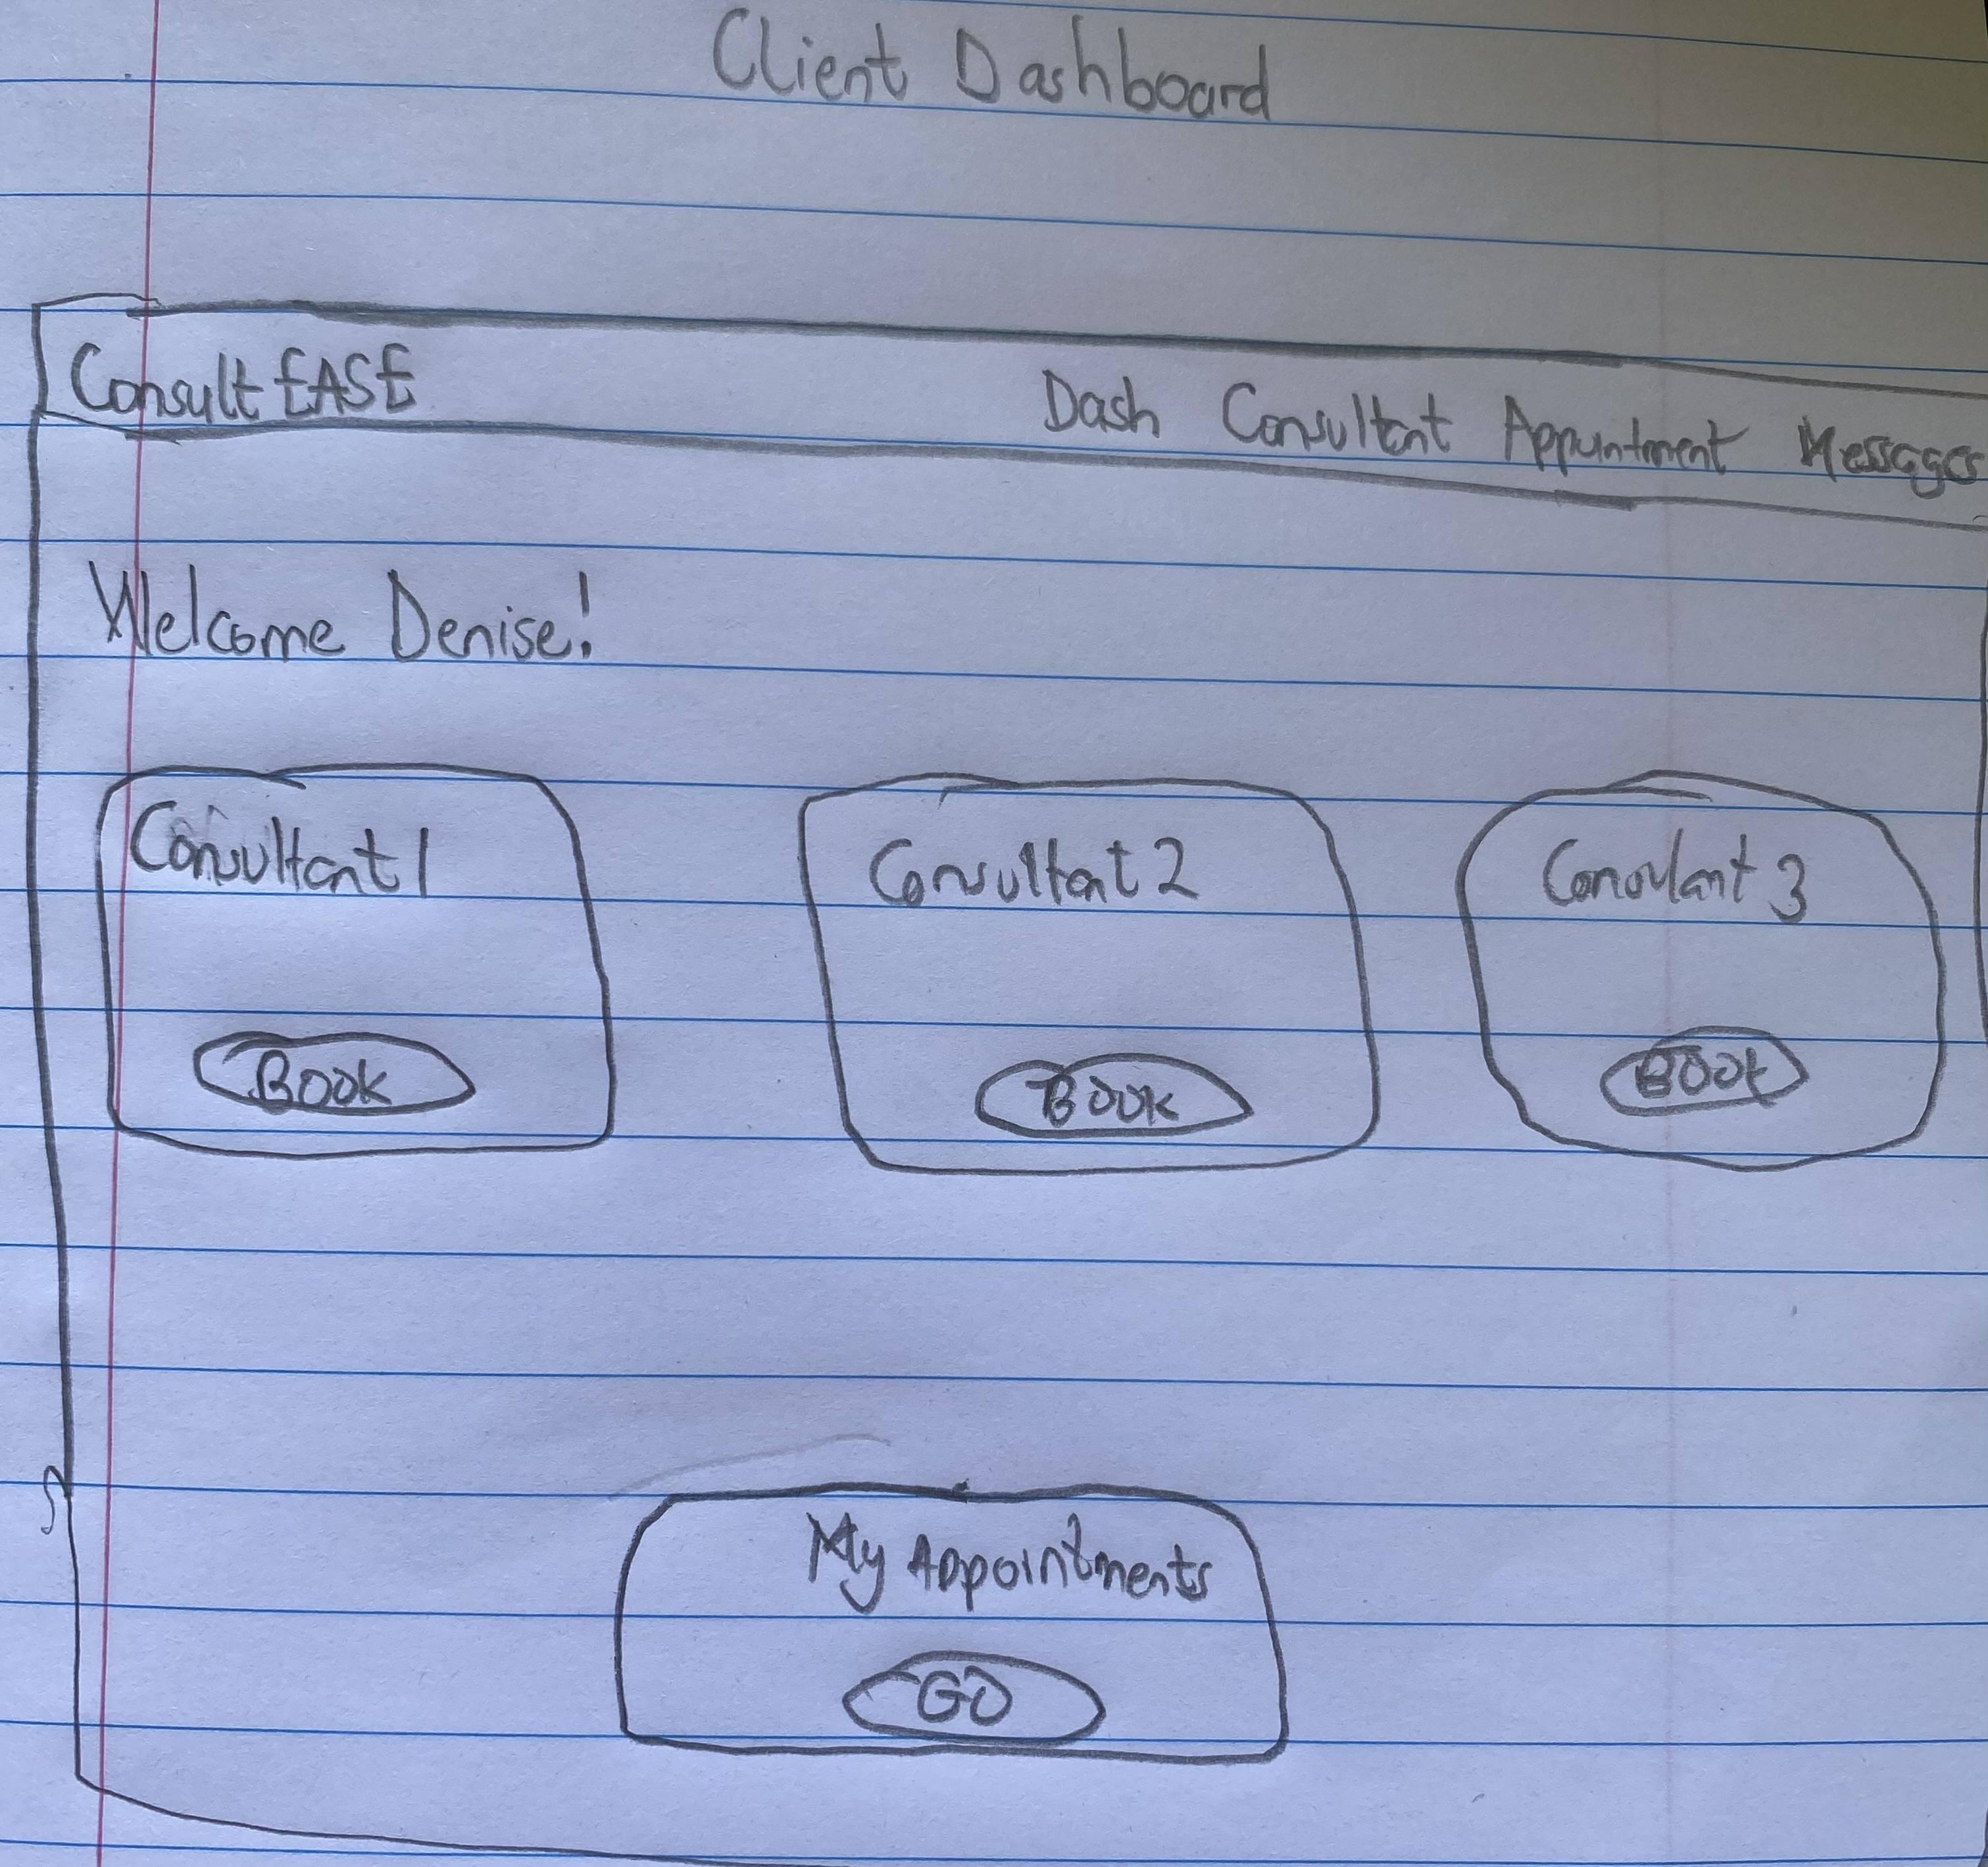 Client Dashboard
Consult EASE Dash Consultant Appuntment Messages
Welcome Denise!
Consultant 1 Consultant 2 Consulant 3
Book Book Book
My Appointments
GO